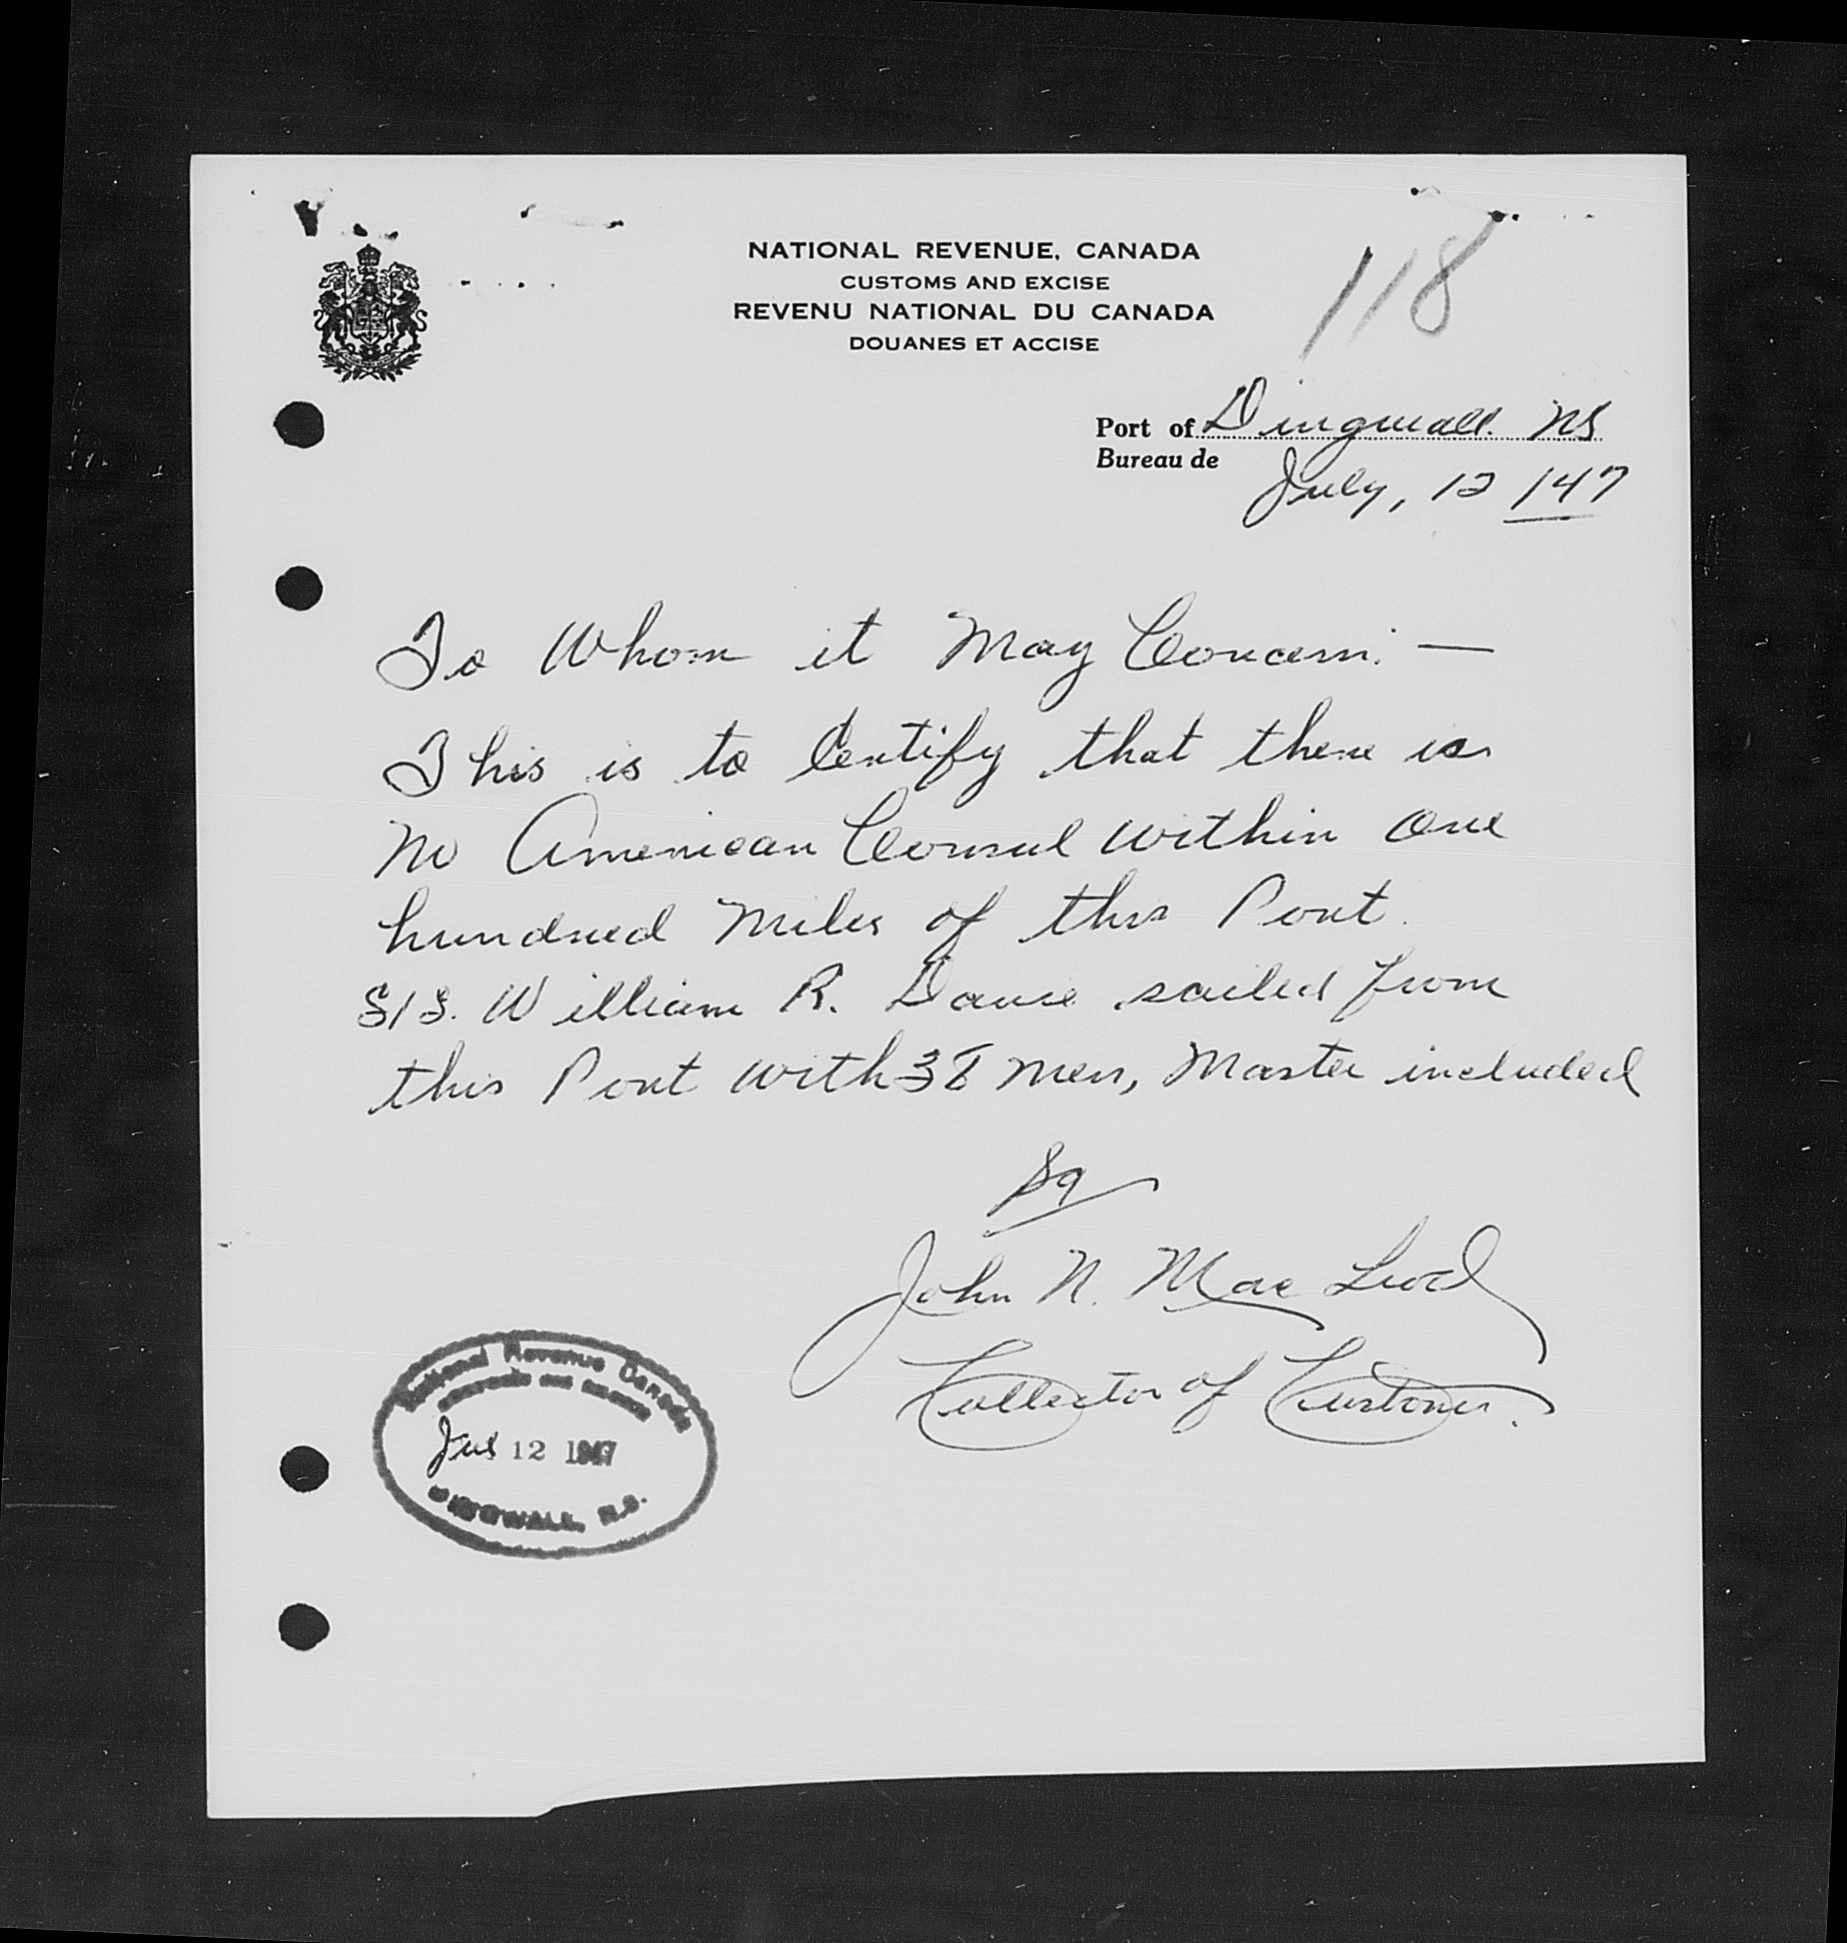 NATIONAL REVENUE, CANADA
CUSTOMS AND EXCISE
REVENU NATIONAL DU CANADA
DOUANES ET ACCISE
118
Port of Dingwall. NS
Bureau de
July, 12 /47
To Whom it May Concern: —
This is to Certify that there is
no American Consul within one
hundred miles of this Port.
S/S. William R. Davie sailed from
this Port with 38 men, Master included
Sg
John N. Mac Leod
Collector of Customs.
National Revenue Canada
CUSTOMS AND EXCISE
Jul 12 1947
DINGWALL, N.S.